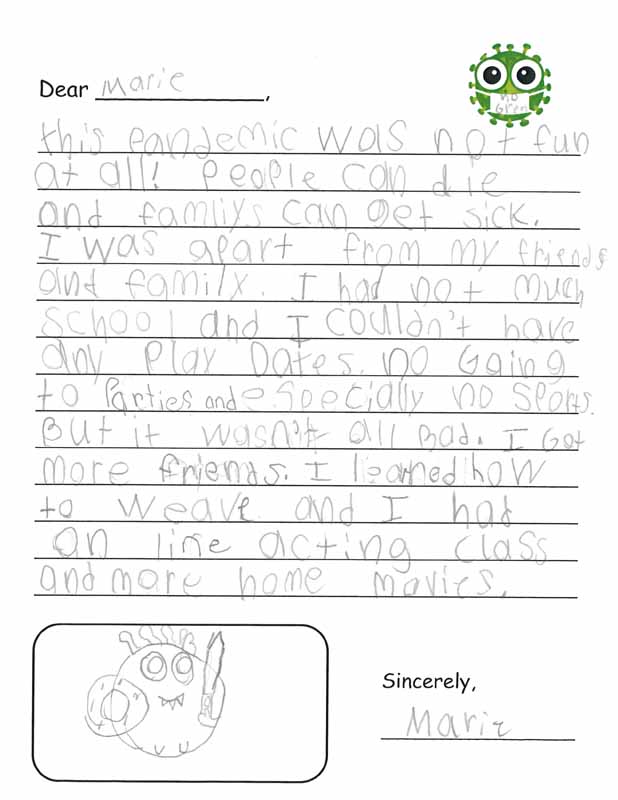 Dear Marie,
no
Gren
this pandemic was not fun
at all! People can die
and famliys can get sick.
I was apart from my friends
and family. I had not much
school and I couldn't have
any Play Dates. no Going
to Parties and especially no sports.
But it wasn't all Bad. I Got
more friends. I learned how
to weave and I had
an line acting class
and more home movies.
Sincerely,
Marie